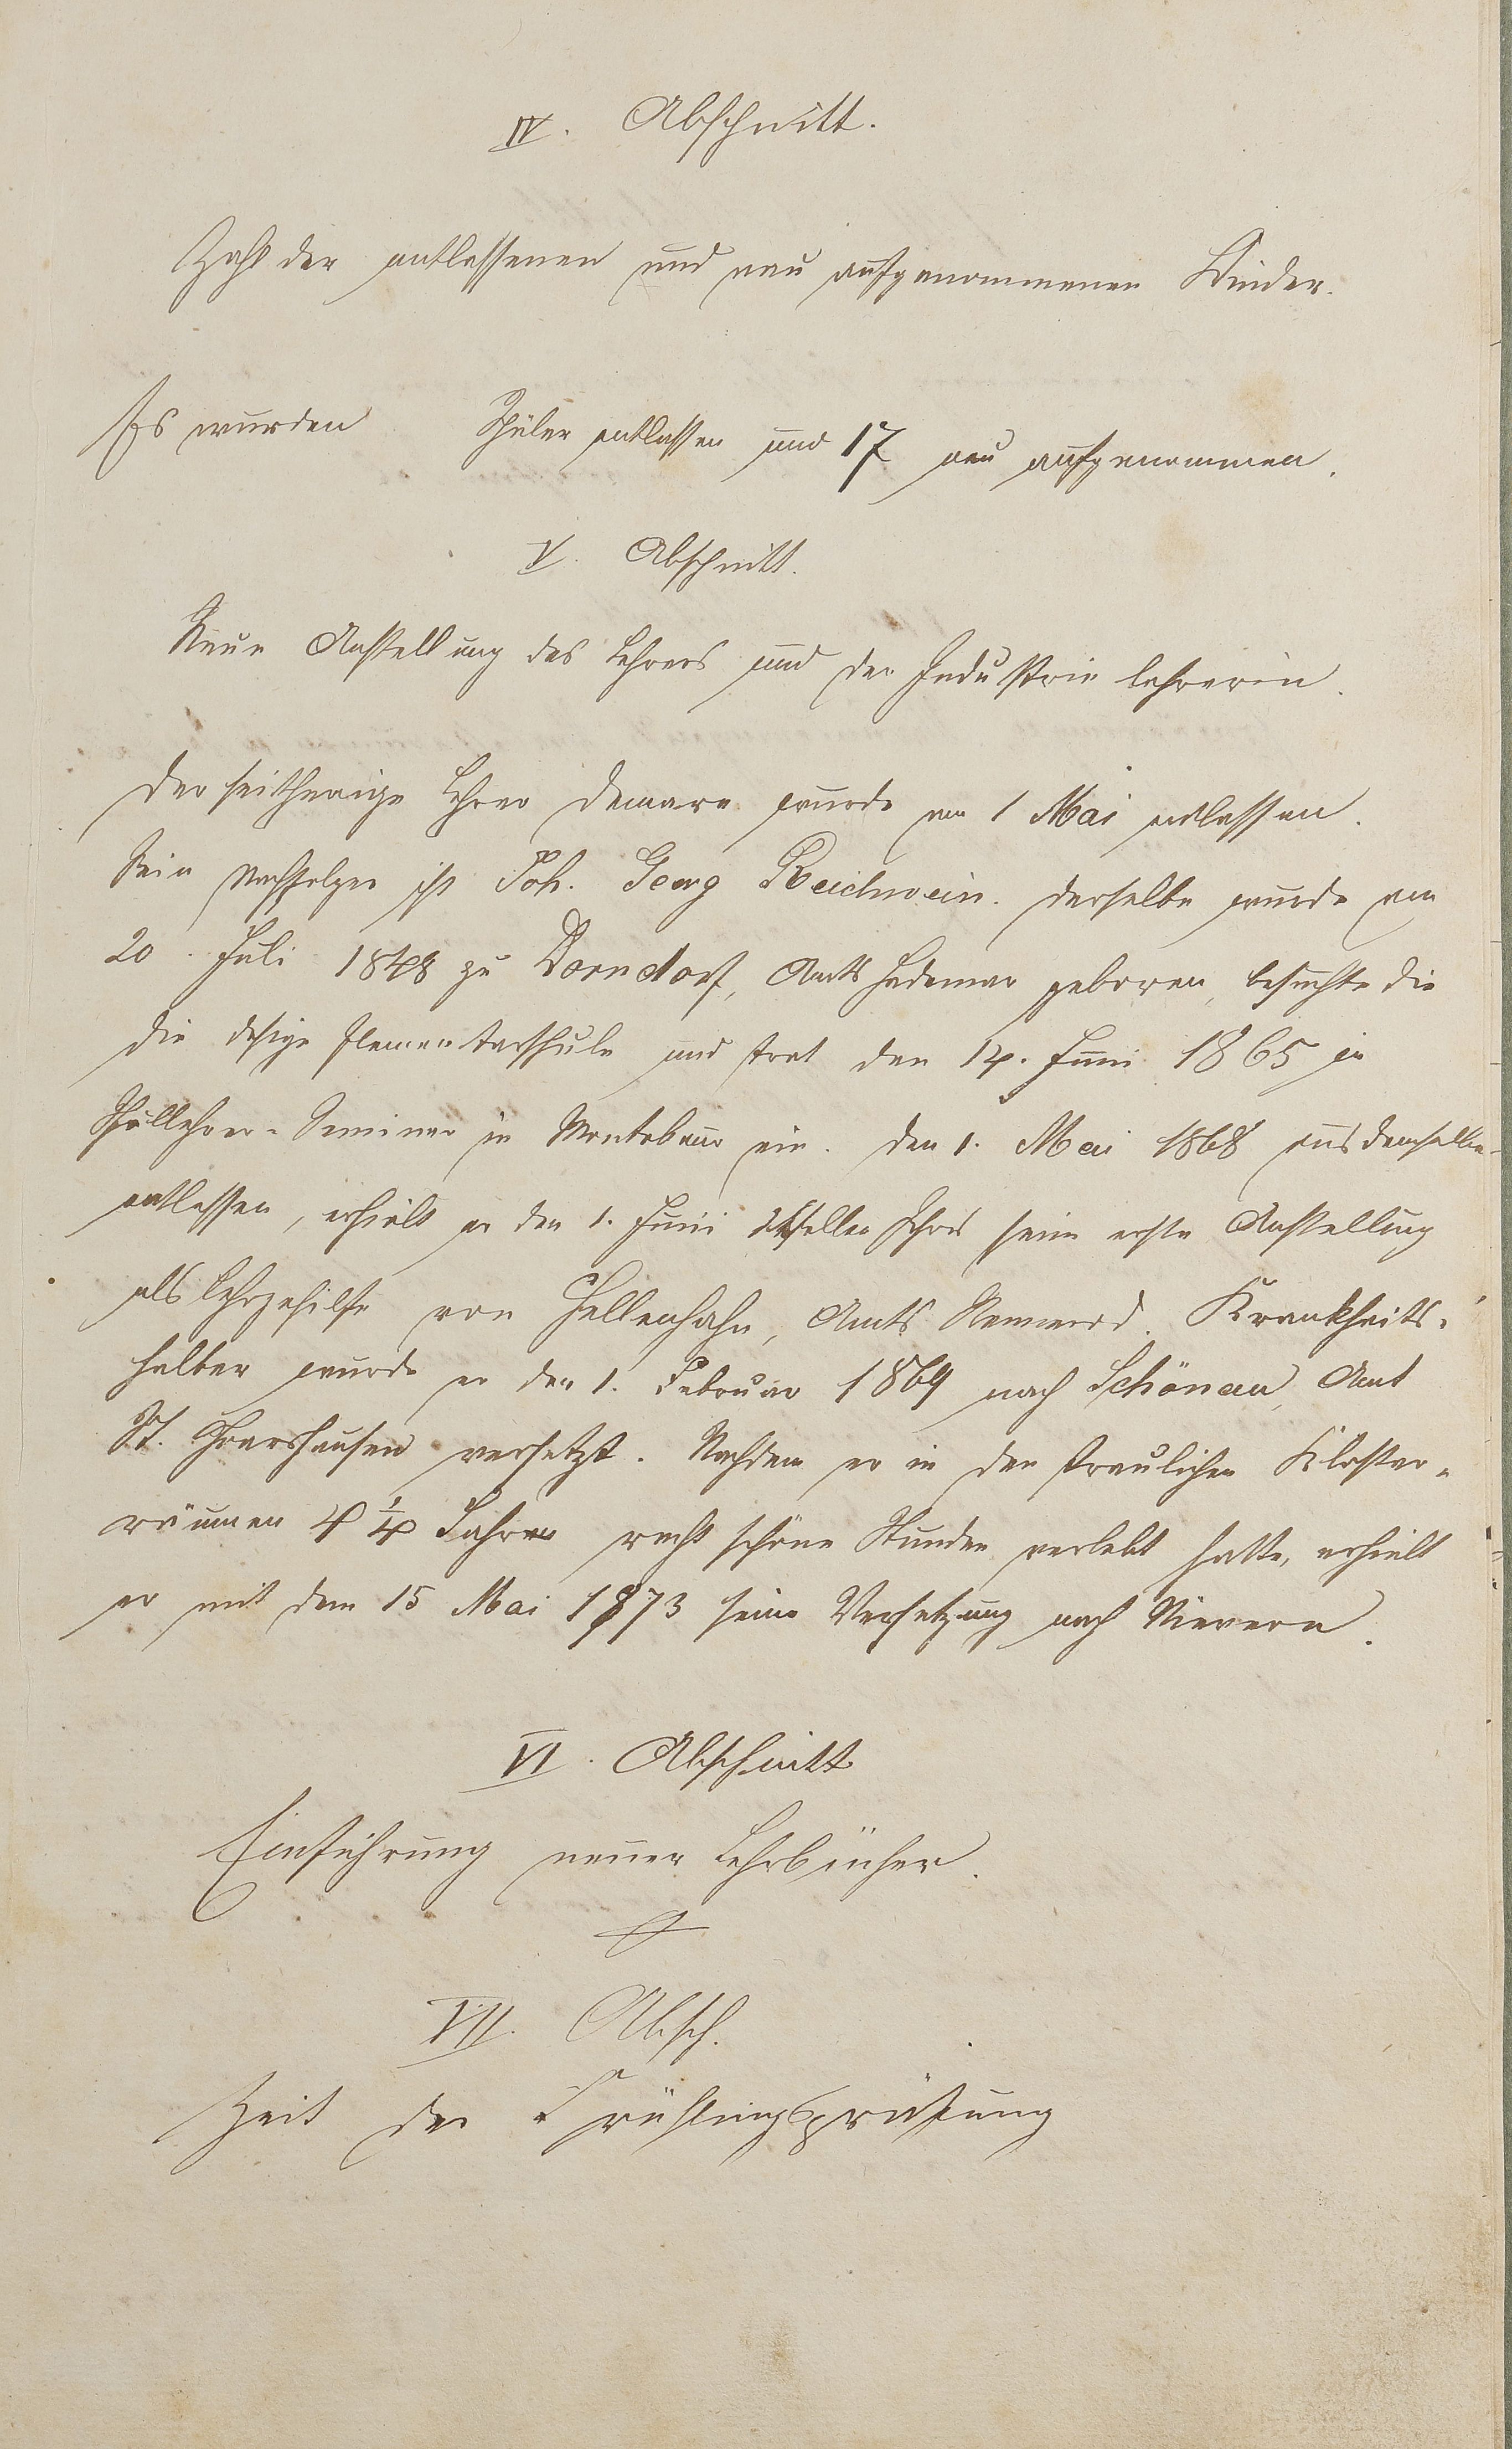 IV. Abschnitt.
Zahl der entlassenen und neu aufgenommenen Kinder.
Es wurden Schüler entlassen und 17 neu aufgenommen.
V. Abschnitt.
Neue Anstellung des Lehrers und der Industrielehrerin.
Der seitherige Lehrer wurde am 1 Mai entlassen.
Sein Nachfolger ist Joh. Georg Reichwein. Derselbe wurde am
20. Juli 1848 zu Dorndorf, Amts Hadamar geboren, besuchte die
die dasige Elementarschule und trat den 14. Juni 1865 in
Schullehrer-Seminar in Montabaur ein. Den 1. Mai 1868 aus demselben
entlassen, erhielt er den 1. Juni desselben Jahres seine erste Anstellung
als Lehrgehilfe von Hellenhahn, Amts Rennerod. Krankheits-
halber wurde er den 1. Februar 1869 nach Schönau, Amt
St. Goarshausen versetzt. Nachdem er in den traulichen Kloster-
räumen 4 1/4 Jahre recht schöne Stunden verlebt hatte, erhielt
er mit dem 15 Mai 1873 seine Versetzung nach Nievern.
VI. Abschnitt
Einführung neuer Lehrbücher.
VII. Absch.
Zeit der Frühlingsprüfung